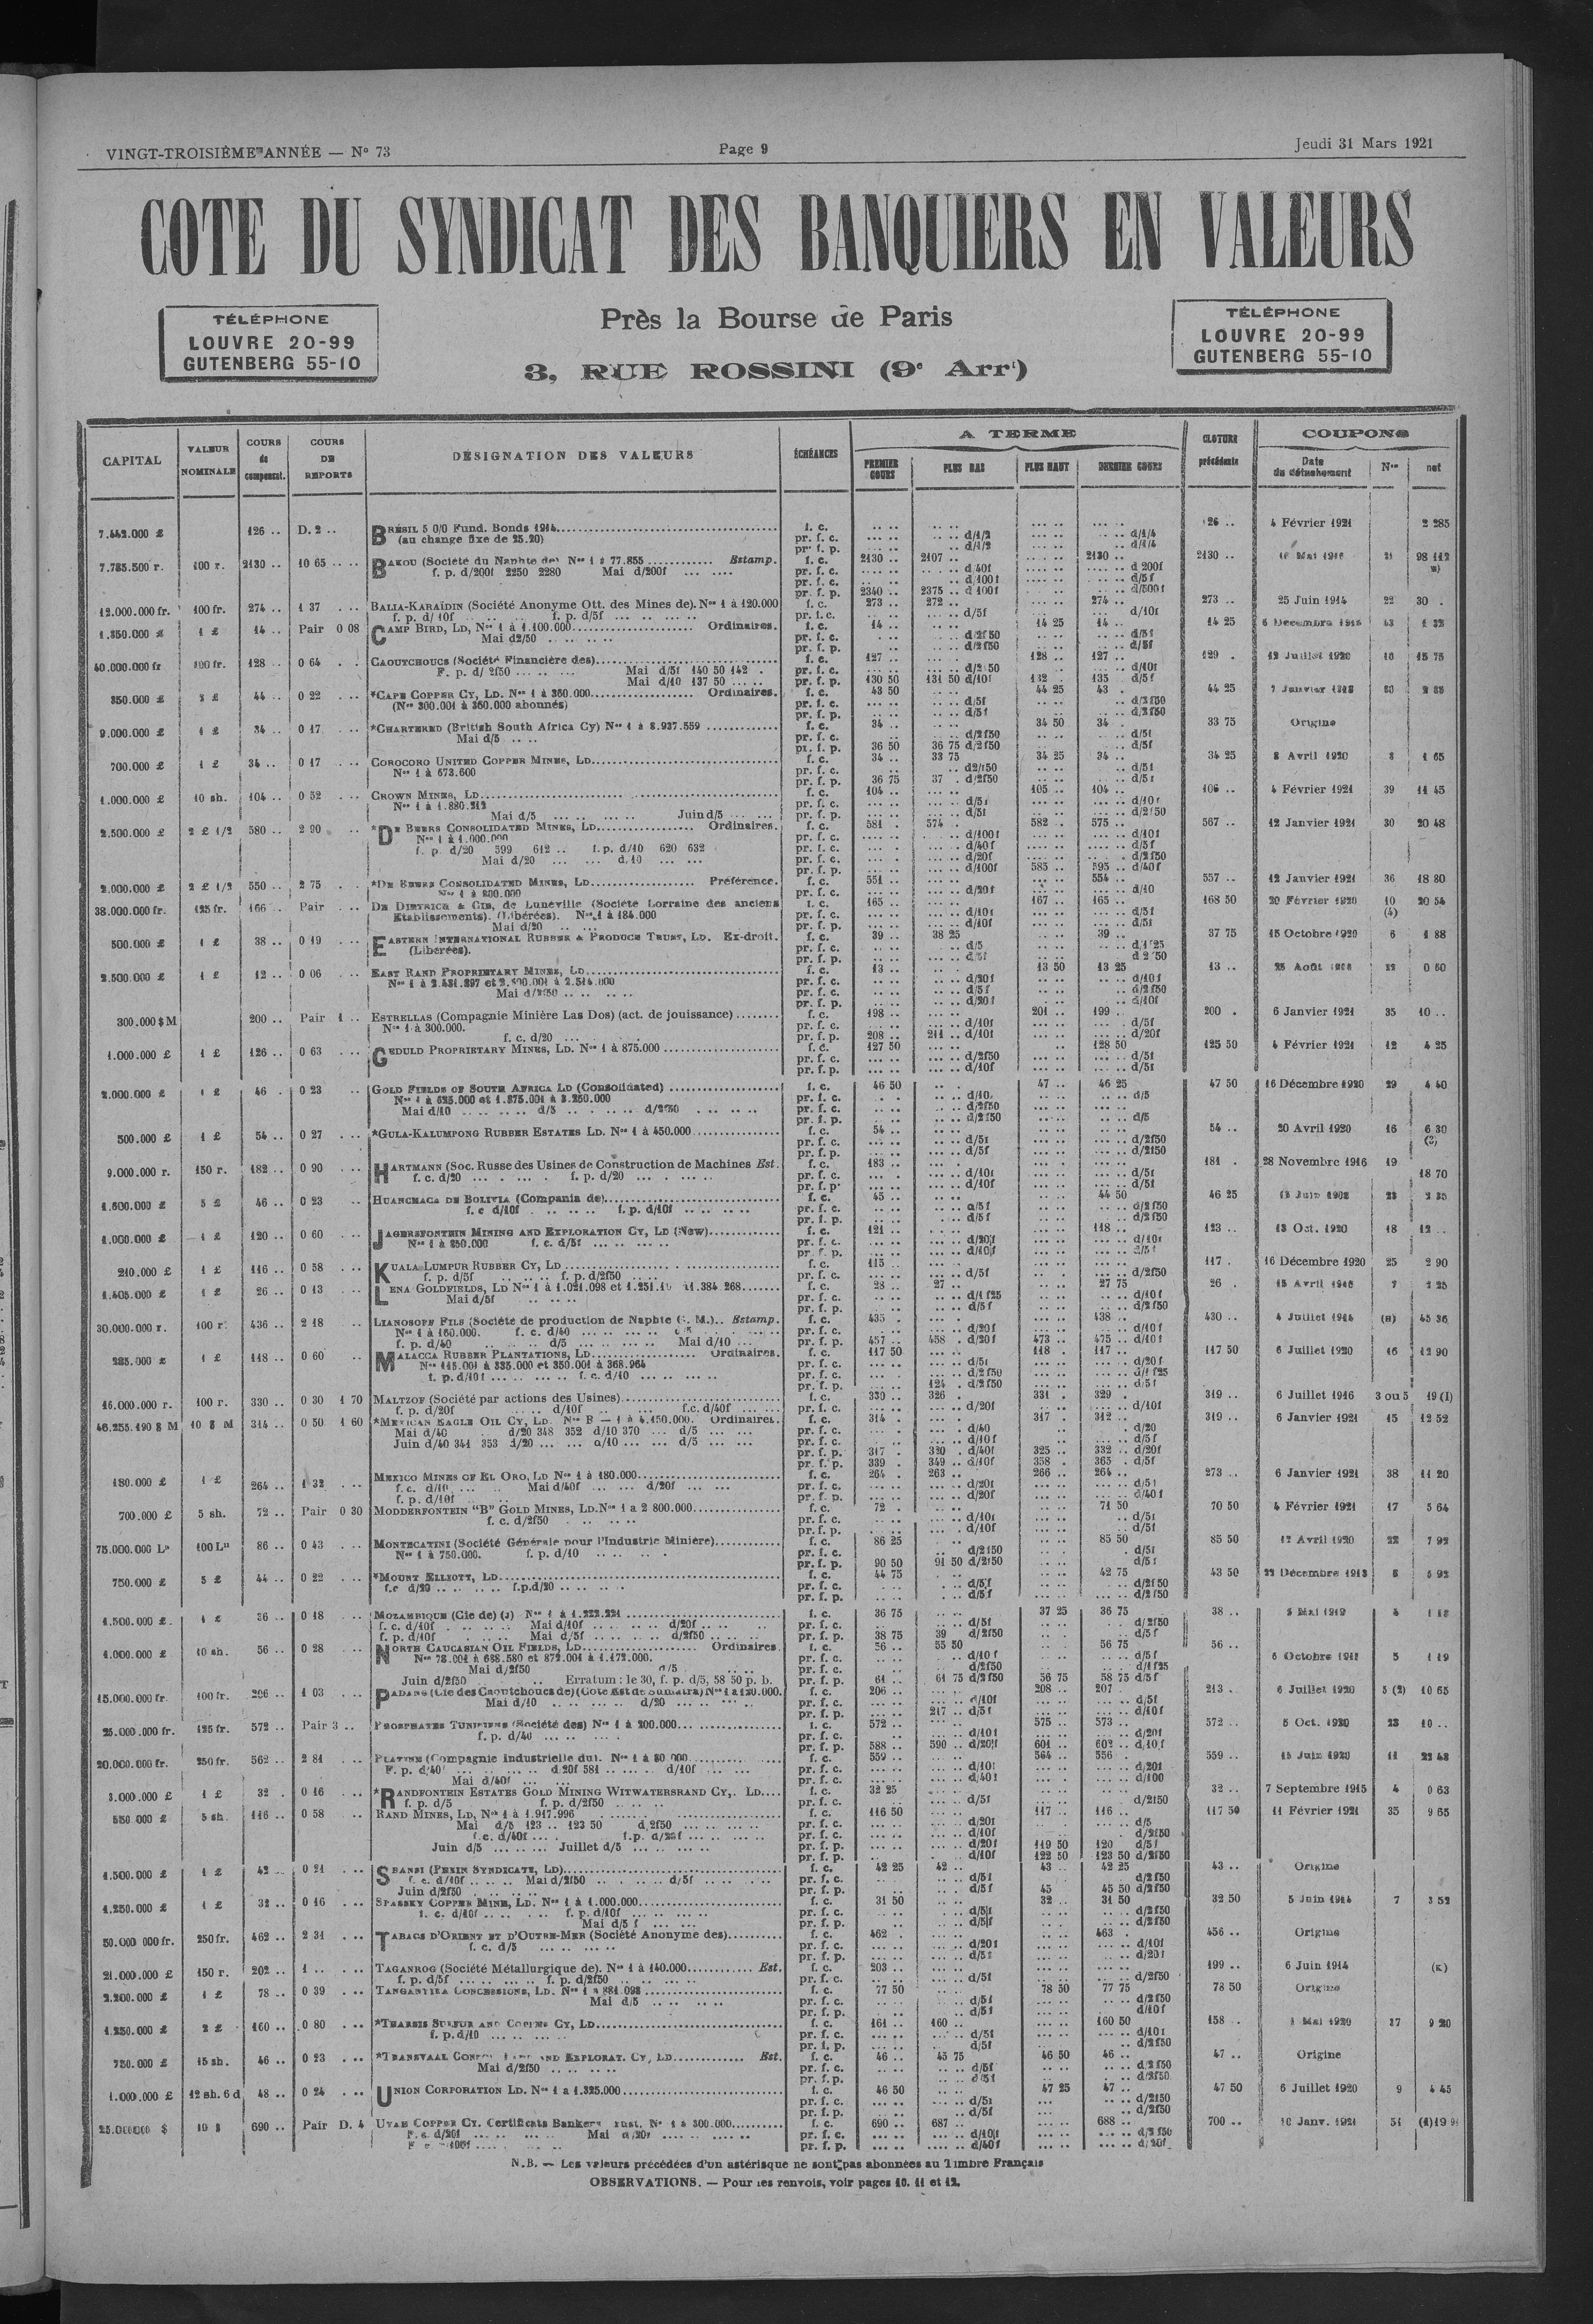 VINGT-TROISIÈME ANNÉE — N° 73
Page 9
Jeudi 31 Mars 1921
COTE DU SYNDICAT DES BANQUIERS EN VALEURS
TÉLÉPHONE
LOUVRE 20-99
GUTENBERG 55-10
Près la Bourse de Paris
3, RUE ROSSINI (9e Arrt)
TÉLÉPHONE
LOUVRE 20-99
GUTENBERG 55-10
CAPITAL VALEUR NOMINALE COURS de compensat. COURS DE REPORTS DÉSIGNATION DES VALEURS ÉCHÉANCES A TERME PREMIER COURS PLUS BAS PLUS HAUT DERNIER COURS CLOTURE précédente COUPONS Date du détachement Nos net
7.442.000 £ 126 .. D. 2 .. BRÉSIL 5 0/0 Fund. Bonds 1914 f. c. 126 .. 4 Février 1921 2 285
(au change fixe de 25.20) pr. f. c. d/1/2 d/1/4
pr. f. p. d/1/2 d/1/4
7.785.500 r. 100 r. 2130 .. 10 65 BAKOU (Société du Naphte de) Nos 1 à 77.855 Estamp. f. c. 2130 .. 2107 .. 2130 .. 2130 .. 21 98 112
f. p. d/200f 2250 2280 Mai d/200f pr. f. c. d/40f d 200f
pr. f. c. d/100f d/5f
pr. f. p. 2340 .. 2375 .. d 100f d/500f
12.000.000 fr. 100 fr. 274 .. 1 37 BALIA-KARAÏDIN (Société Anonyme Ott. des Mines de). Nos 1 à 120.000 f. c. 273 .. 272 .. 274 .. 273 .. 25 Juin 1914 22 30
f. p. d/10f f. p. d/5f pr. f. c. d/5f d/10f
1.350.000 £ 1 £ 14 .. Pair 0 08 CAMP BIRD, LD, Nos 1 à 1.100.000 Ordinaires. f. c. 14 .. 14 25 14 .. 14 25
Mai d2/50 pr. f. c. d/2f50 d/5f
pr. f. p. d/2f50 d/5f
40.000.000 fr 100 fr. 128 .. 0 64 CAOUTCHOUCS (Société Financière des) f. c. 127 .. 128 .. 127 .. 129 . 12 Juillet 1920 10 15 75
F. p. d/2f50 Mai d/5f 140 50 142 pr. f. c. d/2 50 d/10f
Mai d/10 137 50 pr. f. p. 130 50 131 50 d/10f 132 . 135 . d/5f
350.000 £ 2 £ 44 .. 0 22 *CAPE COPPER CY, LD. Nos 1 à 360.000 Ordinaires. f. c. 43 50 44 25 43 . 44 25
(Nos 300.001 à 360.000 abonnés) pr. f. c. d/5f d/2f50
pr. f. p. d/5f d/2f50
9.000.000 £ 1 £ 34 .. 0 17 *CHARTERED (British South Africa Cy) Nos 1 à 8.937.559 f. c. 34 .. 34 50 34 . 33 75 Origine
Mai d/5 pr. f. c. d/2f50 d/5f
pr. f. p. 36 50 36 75 d/2f50 d/5f
700.000 £ 1 £ 34 .. 0 17 COROCORO UNITED COPPER MINES, LD f. c. 34 .. 33 75 34 25 34 .. 34 25 8 Avril 1920 8 1 65
Nos 1 à 673.600 pr. f. c. d2/f50 d/5f
pr. f. p. 36 75 37 . d/2f50 d/5f
1.000.000 £ 10 sh. 104 .. 0 52 CROWN MINES, LD f. c. 104 .. 105 .. 104 .. 106 .. 4 Février 1921 39 11 45
Nos 1 à 1.880.212 pr. f. c. d/5f d/10f
Mai d/5 Juin d/5 pr. f. p. d/5f d/2f50
2.500.000 £ 2 £ 1/2 580 .. 2 90 *DE BEERS CONSOLIDATED MINES, LD Ordinaires. f. c. 581 . 574 . 582 .. 575 .. 567 .. 12 Janvier 1921 30 20 48
Nos 1 à 1.000.000 pr. f. c. d/100f d/10f
f. p. d/20 599 612 .. f. p. d/10 620 632 pr. f. c. d/40f d/5f
Mai d/20 d/10 pr. f. c. d/20f d/2f50
pr. f. p. d/100f 585 .. 595 .. d/40f
2.000.000 £ 2 £ 1/2 550 .. 2 75 *DE BEERS CONSOLIDATED MINES, LD Préférence. f. c. 551 .. 554 .. 557 .. 12 Janvier 1921 36 18 80
Nos 1 à 800.000 pr. f. c. d/20f d/10
38.000.000 fr. 125 fr. 166 .. Pair DE DIETRICH & CIE, de Lunéville (Société Lorraine des anciens f. c. 165 .. 167 .. 165 .. 168 50 20 Février 1920 10 20 54
Etablissements). (Libérées). Nos 1 à 184.000 pr. f. c. d/10f d/5f (4)
Mai d/20 pr. f. p. d/10f d/5f
500.000 £ 1 £ 38 .. 0 19 EASTERN INTERNATIONAL RUBBER & PRODUCE TRUST, LD. Ex-droit. f. c. 39 .. 38 25 39 .. 37 75 15 Octobre 1920 6 1 88
(Libérées). pr. f. c. d/5 d/1 25
pr. f. p. d/5f d 2 50
2.500.000 £ 1 £ 12 .. 0 06 EAST RAND PROPRIETARY MINES, LD f. c. 13 .. 13 50 13 25 13 .. 22 0 60
pr. f. c. d/20f d/10f
Mai d/2f50 pr. f. c. d/5f d/2f50
pr. f. p. d/20f d/10f
300.000 $ M 200 .. Pair 1 .. ESTRELLAS (Compagnie Minière Las Dos) (act. de jouissance) f. c. 198 .. 201 .. 199 .. 200 . 6 Janvier 1921 35 10 ..
Nos 1 à 300.000. pr. f. c. d/10f d/5f
f. c. d/20 pr. f. p. 208 .. 211 .. d/10f d/20f
1.000.000 £ 1 £ 126 .. 0 63 GEDULD PROPRIETARY MINES, LD. Nos 1 à 875.000 f. c. 127 50 128 50 125 50 4 Février 1921 12 4 25
pr. f. c. d/2f50 d/5f
pr. f. p. d/10f d/5f
2.000.000 £ 1 £ 46 . 0 23 GOLD FIELDS OF SOUTH AFRICA LD (Consolidated) f. c. 46 50 47 .. 46 25 47 50 16 Décembre 1920 29 4 40
Nos 1 à 625.000 et 1.875.001 à 3.250.000 pr. f. c. d/10 d/5
Mai d/10 d/5 d/2f50 pr. f. c. d/2f50
pr. f. p. d/2f50 d/5
500.000 £ 1 £ 54 .. 0 27 *GULA-KALUMPONG RUBBER ESTATES LD. Nos 1 à 450.000 f. c. 54 .. 54 .. 20 Avril 1920 16 6 30
pr. f. c. d/5f d/2f50
pr. f. p. d/5f d/2f50
9.000.000 r. 150 r. 182 .. 0 90 HARTMANN (Soc. Russe des Usines de Construction de Machines Est. f. c. 183 .. 181 . 28 Novembre 1916 19
f. c. d/20 f. p. d/20 pr. f. c. d/10f d/5f 18 70
pr. f. p. d/10f d/5f
1.600.000 £ 5 £ 46 .. 0 23 HUANCHACA DE BOLIVIA (Compania de) f. c. 45 .. 44 50 46 25
f. c d/10f f. p. d/10f pr. f. c. d/5f d/2f50
pr. f. p. d/5f d/2f50
1.000.000 £ 1 £ 120 .. 0 60 JAGERSFONTEIN MINING AND EXPLORATION CY, LD (New) f. c. 121 .. 118 .. 123 .. 13 Oct. 1920 18 12 ..
Nos 1 à 250.000 f. c. d/5f pr. f. c. d/20f d/10f
pr. f. p. d/10f d/5f
210.000 £ 1 £ 116 .. 0 58 KUALA LUMPUR RUBBER CY, LD f. c. 115 .. 117 . 16 Décembre 1920 25 2 90
f. p. d/5f f. p. d/2f50 pr. f. c. d/5f d/2f50
1.405.000 £ 1 £ 26 .. 0 13 LENA GOLDFIELDS, LD f. c. 28 .. 27 .. 27 75 26 .
Mai d/5f pr. f. c. d/1f25 d/10f
pr. f. p. d/5f d/2f50
30.000.000 r. 100 r. 436 .. 2 18 LIANOSOFF FILS (Société de production de Naphte G. M.) Estamp. f. c. 435 .. 438 .. 430 .. 4 Juillet 1914 (B) 45 36
Nos 1 à 160.000. f. c. d/40 pr. f. c. d/20f d/10f
f. p. d/40 d/5 Mai d/10 pr. f. p. 457 .. 458 .. d/20f 473 .. 475 .. d/10f
285.000 £ 1 £ 118 .. 0 60 MALACCA RUBBER PLANTATIONS, LD Ordinaires. f. c. 117 50 118 . 117 .. 117 50 6 Juillet 1920 16 12 90
Nos 115.001 à 335.000 et 350.001 à 368.964 pr. f. c. d/5f d/20f
f. p. d/10f f. c. d/10 pr. f. c. d/2f50 d/1f25
pr. f. p. 124 . d/2f50 d/5f
16.000.000 r. 100 r. 330 .. 0 30 1 70 MALTZOF (Société par actions des Usines) f. c. 330 .. 326 . 331 . 329 . 319 .. 6 Juillet 1916 3 ou 5 19 (1)
f. p. d/20f d/10f f.c. d/40f pr. f. c. d/20f d/10f
46.255.490 $ M 10 $ M 314 .. 0 50 1 60 *MEXICAN EAGLE OIL CY, LD. Nos B — 1 à 4.150.000. Ordinaires. f. c. 314 . 317 312 .. 319 .. 6 Janvier 1921 15 12 52
Mai d/40 d/20 348 352 d/10 370 d/5 pr. f. c. d/40 d/20
Juin d/40 341 353 d/20 d/10 d/5 pr. f. c. d/10f d/5f
pr. f. p. 317 . 320 . d/40f 325 .. 332 .. d/20f
pr. f. p. 339 . 349 .. d/10f 358 . 365 . d/5f
180.000 £ 1 £ 264 .. 1 32 MEXICO MINES OF EL ORO, LD Nos 1 à 180.000 f. c. 264 . 263 .. 266 .. 264 .. 273 .. 6 Janvier 1921 38 11 20
f. c. d/10 Mai d/40f d/20f pr. f. c. d/20f d/5f
f. p. d/10f pr. f. p. d/20f d/40f
700.000 £ 5 sh. 72 .. Pair 0 30 MODDERFONTEIN "B" GOLD MINES, LD. Nos 1 a 2 800.000 f. c. 72 . 71 50 70 50 4 Février 1921 17 5 64
f. c. d/2f50 pr. f. c. d/10f d/5f
pr. f. p. d/10f d/5f
75.000.000 Ls 100 Ls 86 .. 0 43 MONTECATINI (Société Générale pour l'Industrie Minière) f. c. 86 25 85 50 85 50 12 Avril 1920 22 7 92
Nos 1 à 750.000. f. p. d/10 pr. f. c. d/2f50 d/5f
pr. f. p. 90 50 91 50 d/2f50 d/5f
750.000 £ 5 £ 44 .. 0 22 *MOUNT ELLIOTT, LD f. c. 44 75 42 75 43 50 22 Décembre 1913
f.c d/20 f.p.d/20 pr. f. c. d/5f d/2f50
pr. f. p. d/5f d/2f50
1.500.000 £ 1 £ 36 .. 0 18 MOZAMBIQUE (Cie de) (J) Nos 1 à 1.222.221 f. c. 36 75 37 25 36 75 38 ..
f. c. d/10f Mai d/10f d/20f pr. f. c. d/5f d/2f50
f. p. d/10f Mai d/5f d/2f50 pr. f. p. 38 75 39 d/2f50 d/5f
1.000.000 £ 10 sh. 56 .. 0 28 NORTH CAUCASIAN OIL FIELDS, LD Ordinaires f. c. 56 .. 55 50 56 75 56 ..
Nos 78.001 à 688.580 et 872.001 à 1.172.000. pr. f. c. d/10f d/5f 5 1 19
Mai d/2f50 d/5 pr. f. c. d/2f50 d/1f25
Juin d/2f50 Erratum : le 30, f. p. d/5, 58 50 p. b. pr. f. p. 61 . 61 75 d/2f50 56 75 58 75 d/5f
15.000.000 fr. 100 fr. 206 .. 1 03 PADANG (Cie des Caoutchoucs de) (Côte Est de Sumatra) Nos 1 à 120.000. f. c. 206 .. 208 .. 207 . 213 . 6 Juillet 1920 5 (2) 10 65
Mai d/10 d/20 pr. f. c. d/10f d/5f
pr. f. p. 217 .. d/5f d/10f
25.000.000 fr. 125 fr. 572 .. Pair 3 .. PHOSPHATES TUNISIENS (Société des) Nos 1 à 200.000 f. c. 572 .. 575 .. 573 .. 572 .. 5 Oct. 1920 23 10 ..
f. p. d/40 pr. f. c. d/10f d/20f
pr. f. p. 588 .. 590 .. d/20f 601 .. 602 .. d/10f
20.000.000 fr. 250 fr. 562 .. 2 81 PLATINE (Compagnie Industrielle du). Nos 1 à 80 000 f. c. 559 .. 564 .. 556 . 559 .. 15 Juin 1920 11 22 48
F. p. d/40 d 20f 581 d/10f pr. f. c. d/10f d/20f
Mai d/40f pr. f. c. d/40f d/100
3.000.000 £ 1 £ 32 . 0 16 *RANDFONTEIN ESTATES GOLD MINING WITWATERSRAND CY,. LD f. c. 32 25 32 .. 7 Septembre 1915 4 0 63
f. p. d/5 f. p. d/2f50 pr. f. c. d/5f d/2f50
550 000 £ 5 sh. 116 .. 0 58 RAND MINES, LD, Nos 1 à 1.917.996 f. c. 116 50 117 .. 116 .. 117 50 11 Février 1921 35 9 65
Mai d/5 123 .. 123 50 d/2f50 pr. f. c. d/20f d/5
f.c. d/40f f.p. d/20f pr. f. c. d/10f d/2f50
Juin d/5 Juillet d/5 pr. f. p. d/20f 119 50 120 d/5f
pr. f. p. d/10f 122 50 123 50 d/2f50
1.500.000 £ 1 £ 42 .. 0 21 SHANSI (PEKIN SYNDICATE, LD) f. c. 42 25 42 .. 43 .. 42 25 43 .. Origine
f. c. d/10f Mai d/2f50 d/5f pr. f. c. d/5f d/2f50
Juin d/2f50 pr. f. p. d/5f 45 45 50 d/2f50
1.250.000 £ 1 £ 32 .. 0 16 SPASSKY COPPER MINE, LD. Nos 1 à 1.000.000 f. c. 31 50 32 .. 31 50 32 50 5 Juin 1914 7 3 52
f. c. d/10f f. p. d/10f pr. f. c. d/5f d/2f50
Mai d/5 f pr. f. p. d/5f d/2f50
50.000 000 fr. 250 fr. 462 .. 2 31 TABACS D'ORIENT ET D'OUTRE-MER (Société Anonyme des) f. c. 462 . 463 . 456 .. Origine
f. c. d/5 pr. f. c. d/20f d/10f
pr. f. p. d/5f d/20f
21.000.000 £ 150 r. 202 .. 1 .. TAGANROG (Société Métallurgique de). Nos 1 à 140.000 Est. f. c. 203 .. 199 .. 6 Juin 1914 (K)
f. p. d/5f f. p. d/2f50 pr. f. c. d/5f d/2f50
2.200.000 £ 1 £ 78 .. 0 39 TANGANYIKA CONCESSIONS, LD. Nos 1 à 881 098 f. c. 77 50 78 50 77 75 78 50 Origine
Mai d/5 pr. f. c. d/5f d/2f50
pr. f. p. d/5f d/10f
1.250.000 £ 2 £ 160 .. 0 80 *THARSIS SULFUR AND COPPER CY, LD f. c. 161 .. 160 .. 160 50 158 .. 37 9 20
f. p. d/10 pr. f. c. d/5f d/10f
pr. f. p. d/5f d/2f50
750.000 £ 15 sh. 46 .. 0 23 *TRANSVAAL CONSOL. LAND AND EXPLORAT. CY, LD Est. f. c. 46 .. 45 75 46 50 46 .. 47 .. Origine
Mai d/2f50 pr. f. c. d/5f d/2f50
pr. f. p. d/5f d/2f50
1.000.000 £ 12 sh. 6 d 48 .. 0 24 UNION CORPORATION LD. Nos 1 a 1.325.000 f. c. 46 50 47 25 47 .. 47 50 6 Juillet 1920 9 4 45
pr. f. c. d/5f d/2f50
pr. f. p. d/5f d/2f50
25.000000 $ 10 $ 690 .. Pair D. 4 UTAH COPPER CY. Certificats Bankers Trust, Nos 1 à 300.000 f. c. 690 .. 687 .. 688 .. 700 .. 10 Janv. 1921 51
F. c. d/20f Mai d/20f pr. f. c. d/10f d/2f50
pr. f. p. d/40f d/20f
N.B. — Les valeurs précédées d'un astérisque ne sont pas abonnées au Timbre Français
OBSERVATIONS. — Pour les renvois, voir pages 10. 11 et 12.